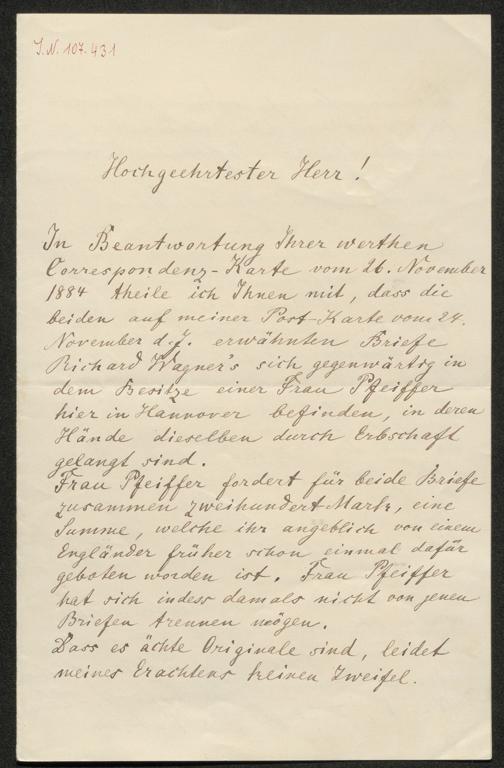 J.N. 107.431
Hochgeehrtester Herr!
In Beantwortung Ihrer werthen
Correspondenz-Karte vom 26. November
1884 theile ich Ihnen mit, dass die
beiden auf meiner Post-Karte vom 24.
November d. J. erwähnten Briefe
Richard Wagner's sich gegenwärtig in
dem Besitze einer Frau Pfeiffer
hier in Hannover befinden, in deren
Hände dieselben durch Erbschaft
gelangt sind.
Frau Pfeiffer fordert für beide Briefe
zusammen zweihundert Mark, eine
Summe, welche ihr angeblich von einem
Engländer früher schon einmal dafür
geboten worden ist. Frau Pfeiffer
hat sich indess damals nicht von jenen
Briefen trennen mögen.
Dass es ächte Originale sind, leidet
meines Erachtens keinen Zweifel.